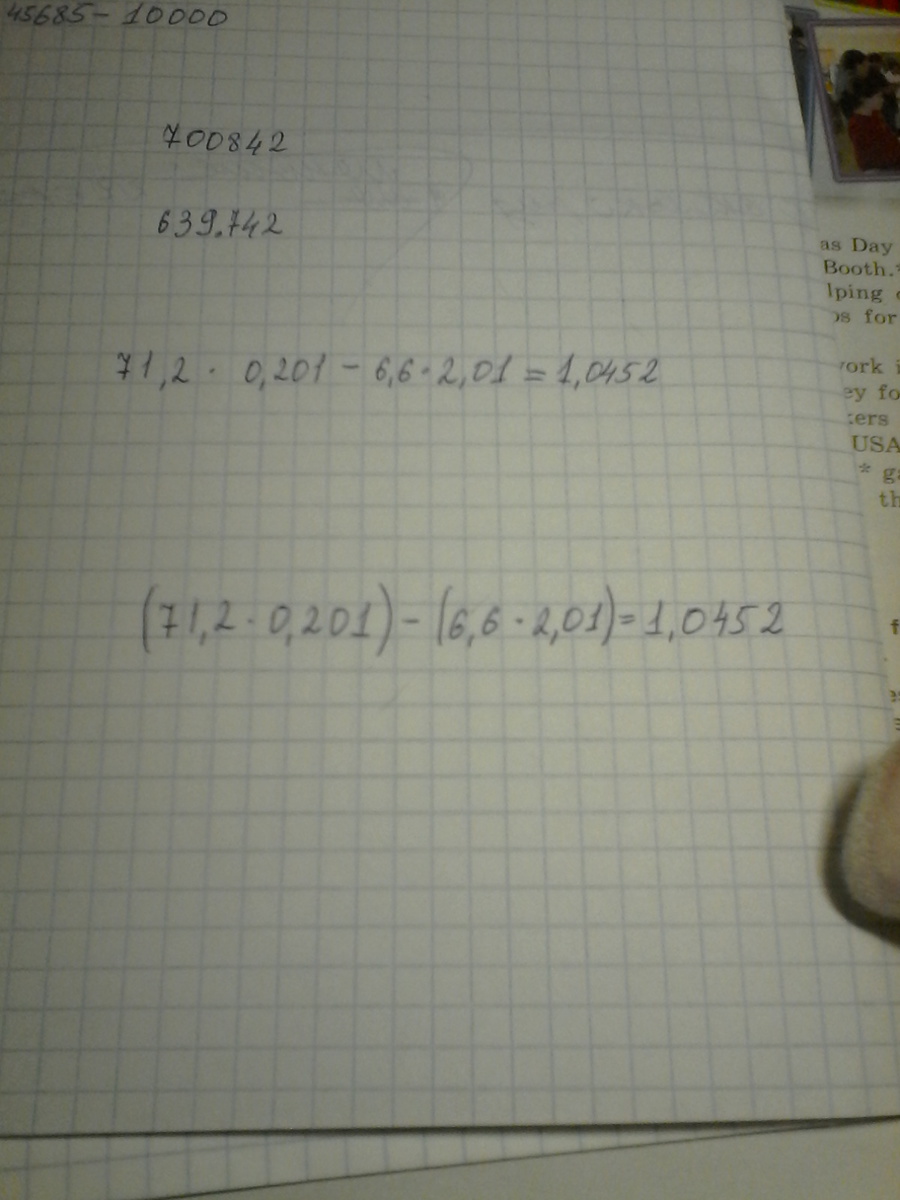 45685 - 10000
700842
639.742
71,2 · 0,201 - 6,6 · 2,01 = 1,0452
(71,2 · 0,201) - (6,6 · 2,01) = 1,0452
as Day
Booth.*
lping
for
USA
* ga
th